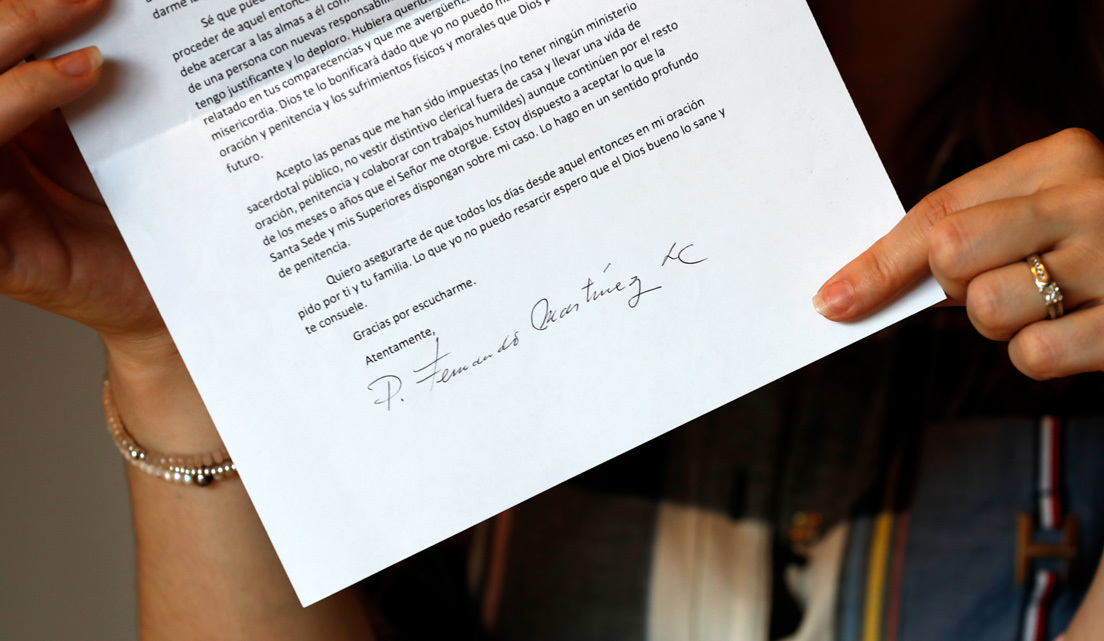 darme
Sé que
proceder de aquel entonc
debe acercar a las almas a él con
de una persona con nuevas responsabil
tengo justificante y lo deploro. Hubiera querid
relatado en tus comparecencias y que me avergüenz
misericordia. Dios te lo bonificará dado que yo no puedo m
oración y penitencia y los sufrimientos físicos y morales que Dios p
futuro.
Acepto las penas que me han sido impuestas (no tener ningún ministerio
sacerdotal público, no vestir distintivo clerical fuera de casa y llevar una vida de
oración, penitencia y colaborar con trabajos humildes) aunque continúen por el resto
de los meses o años que el Señor me otorgue. Estoy dispuesto a aceptar lo que la
Santa Sede y mis Superiores dispongan sobre mi caso. Lo hago en un sentido profundo
de penitencia.
Quiero asegurarte de que todos los días desde aquel entonces en mi oración
pido por ti y tu familia. Lo que yo no puedo resarcir espero que el Dios bueno lo sane y
te consuele.
Gracias por escucharme.
Atentamente,
P. Fernando Martínez LC